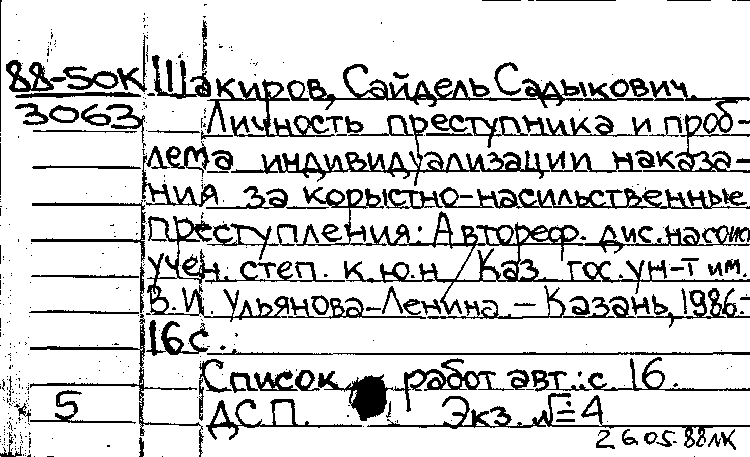 88-50К Шакиров, Сайдель Садыкович.
3063 Личность преступника и проб-
лема индивидуализации наказа-
ния за корыстно-насильственные
преступления: Автореф. дис. на соис
учен. степ. к.ю.н / Каз. гос. ун-т им.
В.И. Ульянова-Ленина. - Казань, 1986.-
16с.:
Список работ авт.: с. 16.
5 ДСП. Экз. №=4
26.05.88ЛК